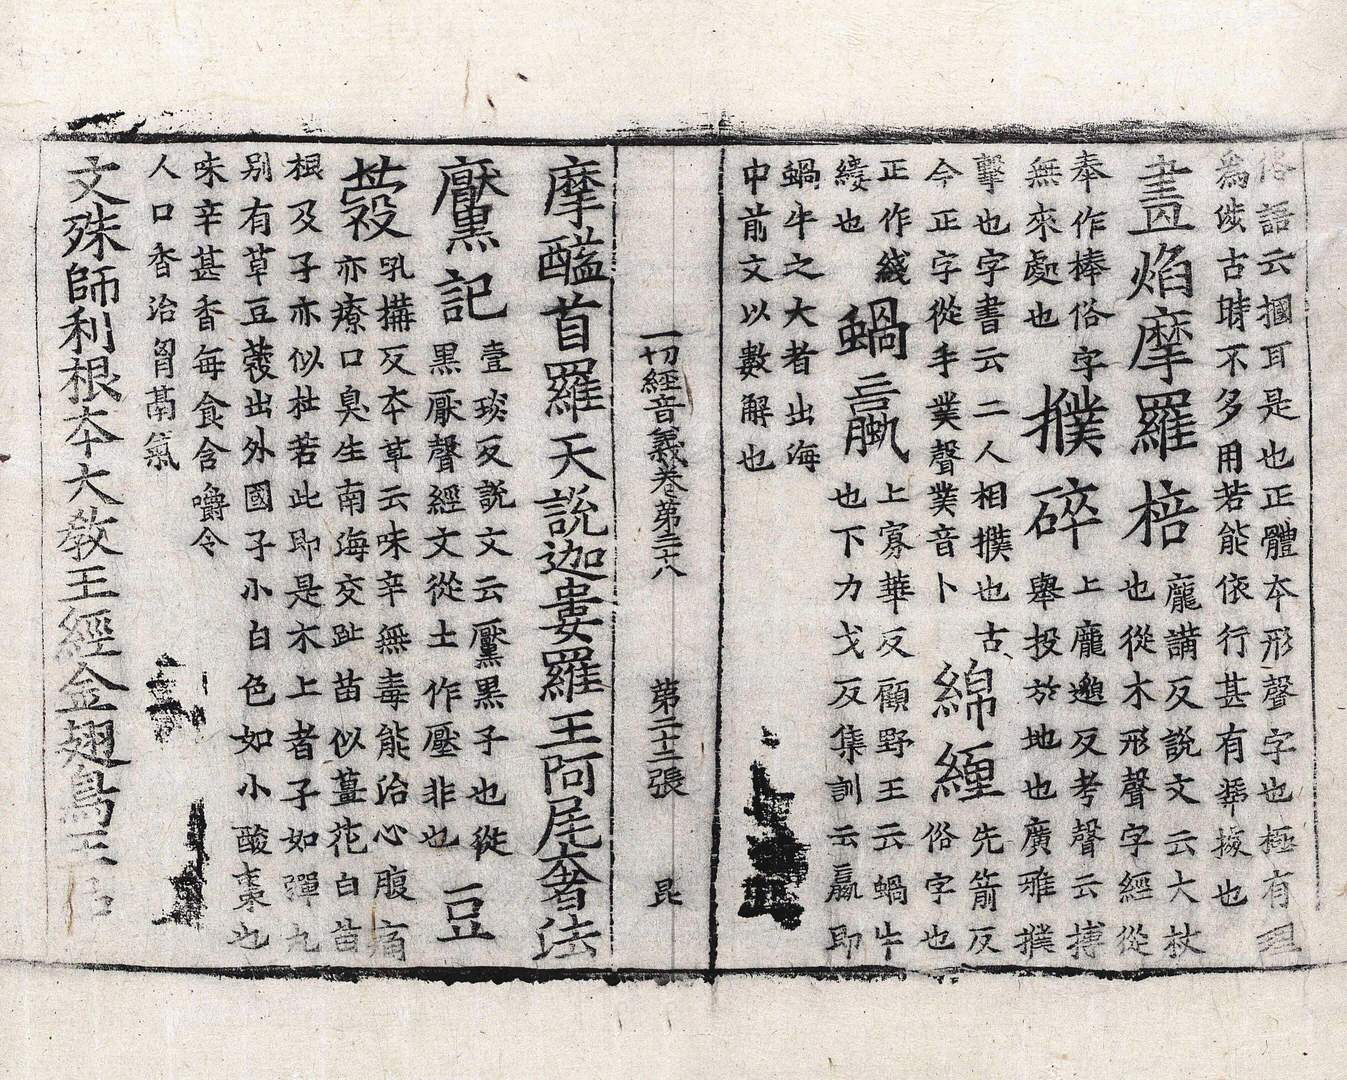 俗語云摑耳是也正體本形聲字也極有理
為傜古時不多用若能依行甚有㨿也
晝焰摩羅棓 龐講反說文云大杖也從木形聲字經從
奉作棒俗字無來處也 撲碎 上龐邈反考聲云摶舉投於地也廣雅撲
擊也字書云二人相撲也古今正字從手業聲業音卜 綿纏 先箭反俗字也
正作綫綫也 蝸蠃 上寡華反顧野王云蝸牛也下力戈反集訓云蠃即
蝸牛之大者出海中前文以數解也
一切經音義卷第三十八 第二十二張 昆
摩醯首羅天說迦婁羅王阿尾奢法
黶記 壹琰反說文云黶黑子也從黑厭聲經文從土作壓非也 豆
蔻 吼搆反本草云味辛無毒能治心腹痛亦療口臭生南海交趾苗似薑花白苗
根及子亦似杜若此即是木上者子如彈丸
別有草豆蔻出外國子小白色如小酸棗也
味辛甚香每食含嚼令人口香治胷鬲氣
文殊師利根本大教王經金翅鳥王品